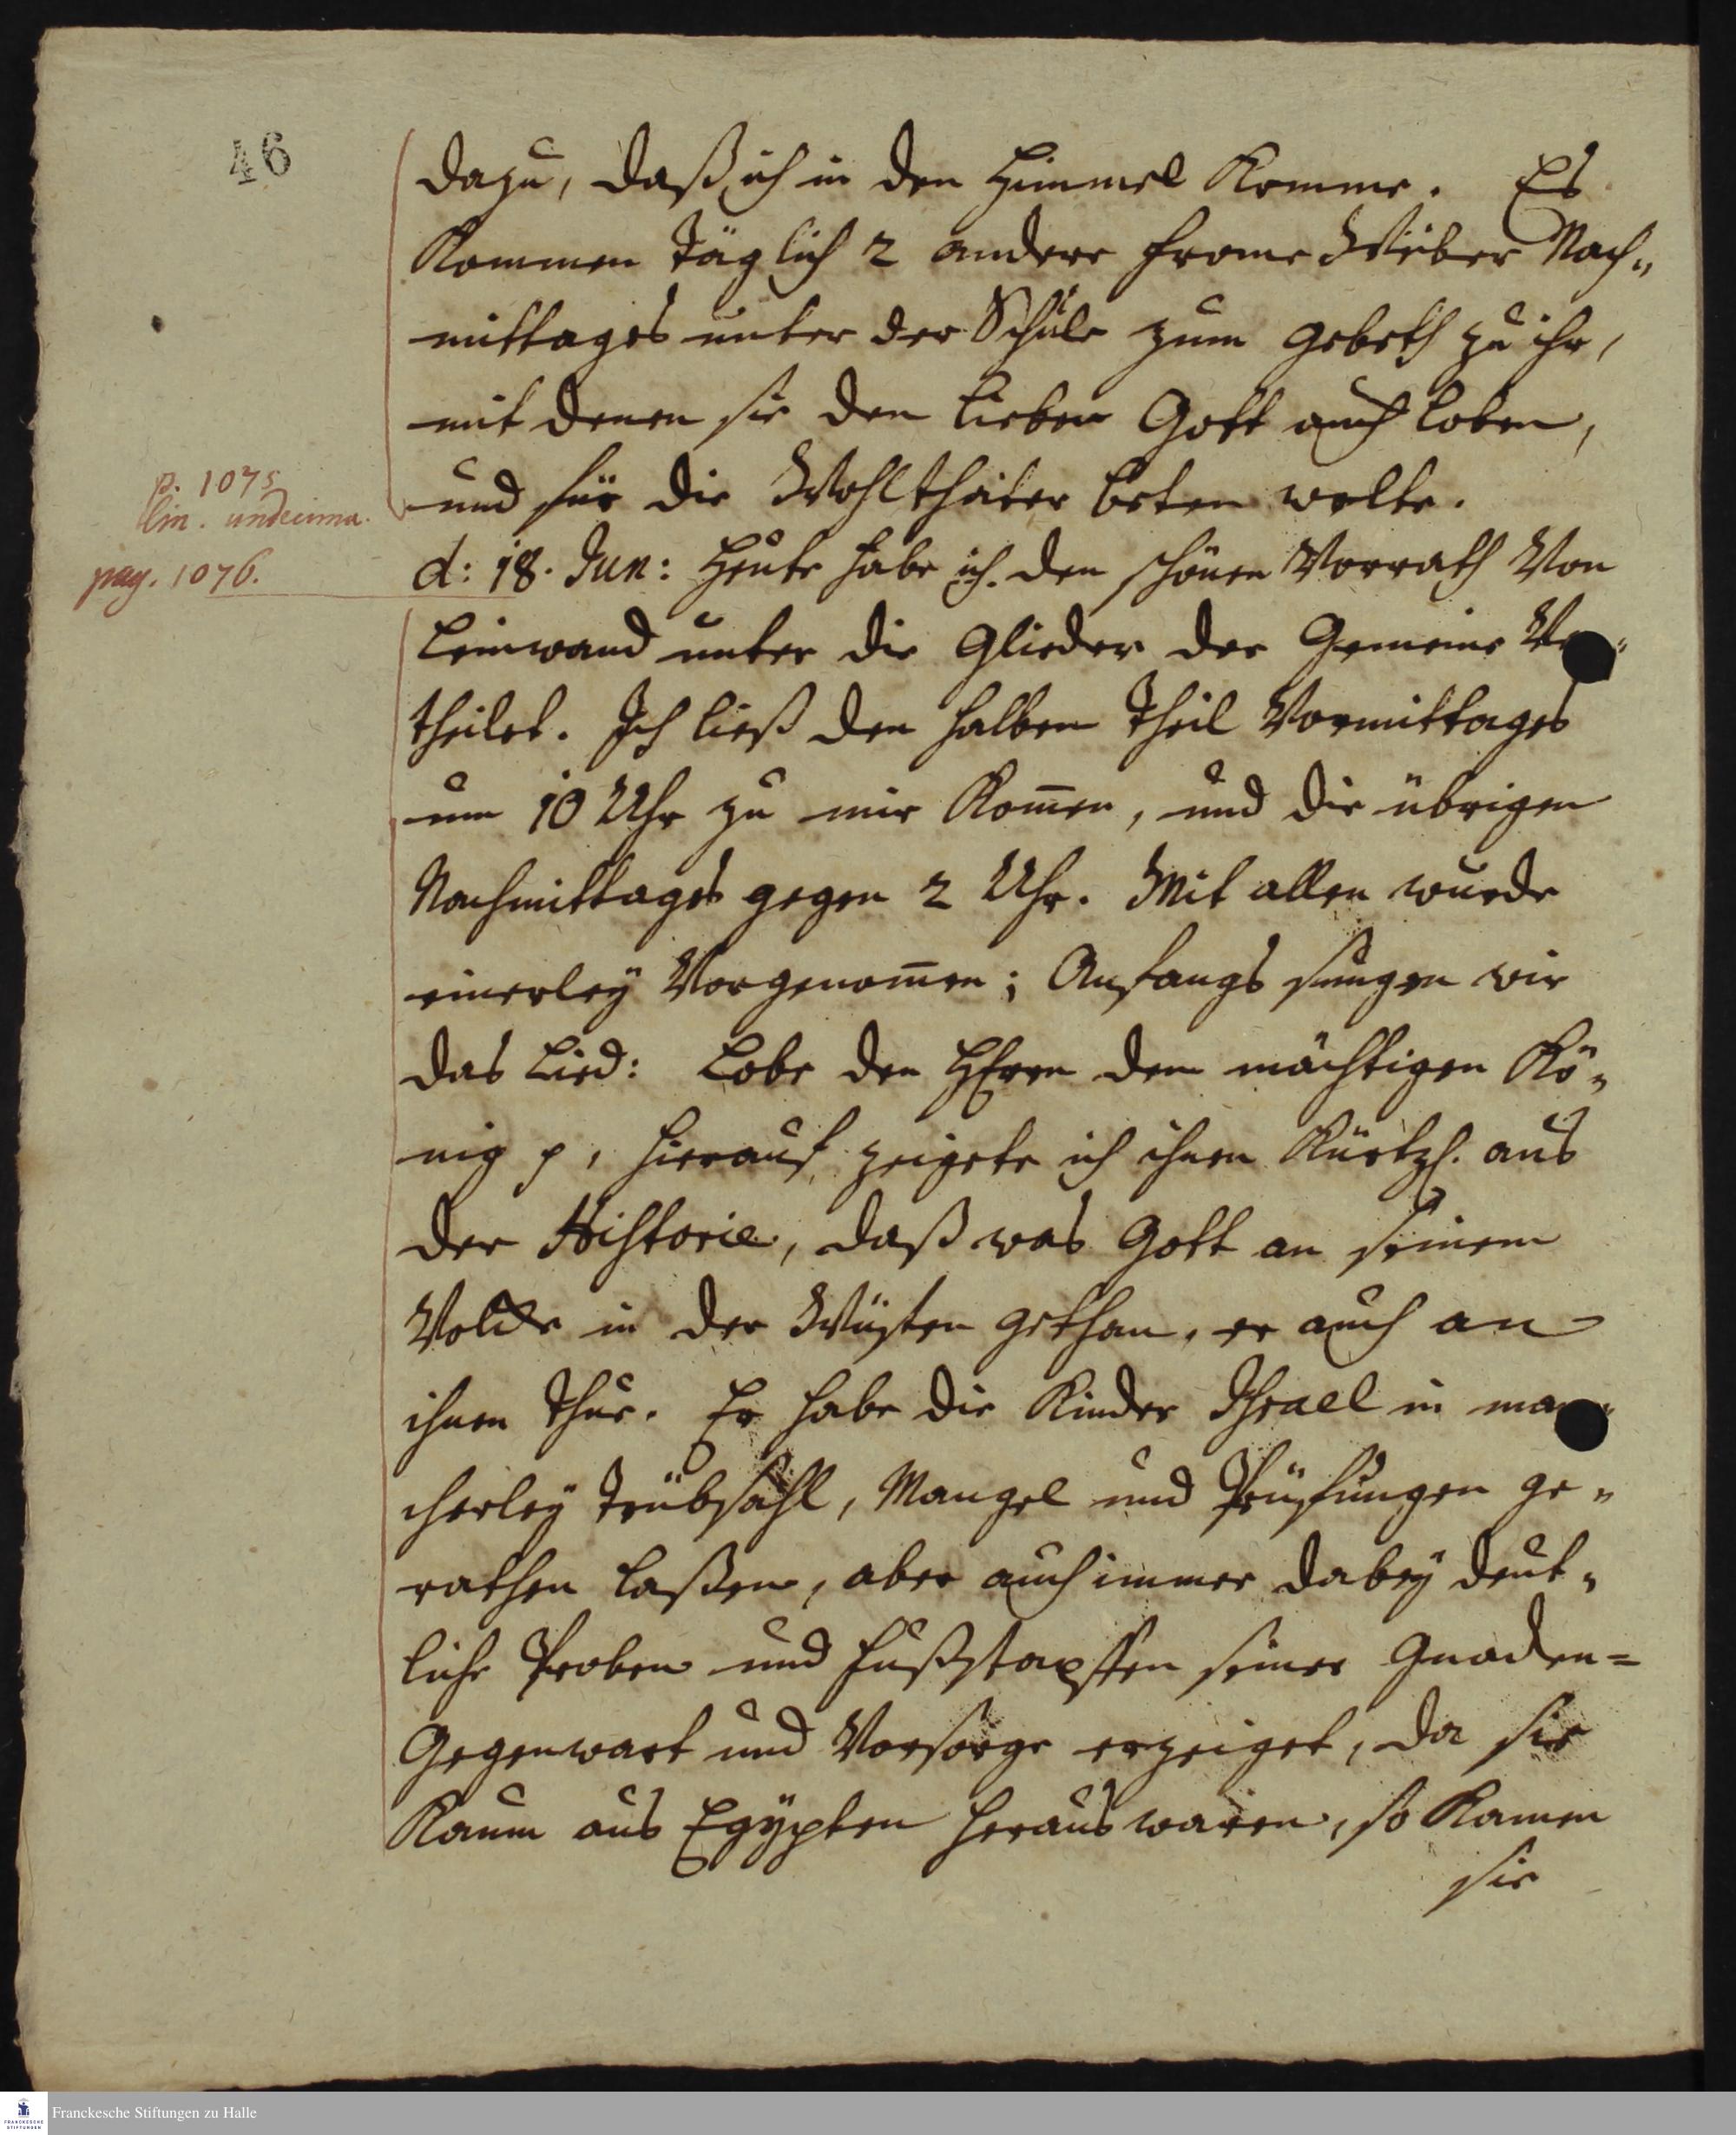 46
dazu, daß ich in den Himmel komme. Es
kommen täglich 2 andere frome Weiber Nach„
mittages unter der Schule zum Gebeth zu ihr,
mit denen sie den lieben Gott auch loben,
und für die Wohlthäter beten wolte.
p. 1075
lin. undecima.
pag. 1076.
d: 18. Jun: Heute habe ich den schönen Vorrath Von
Leinwand unter die Glieder der Gemeine Ver„
theilet. Ich ließ den halben Theil Vormittages
um 10 Uhr zu mir kom̄en, und die übrigen
Nachmittages gegen 2 Uhr. Mit allen wurde
einerleÿ Vorgenom̄en; Anfangs sungen wir
das Lied: Lobe den HErrn den mächtigen Kö„
nig p, hierauf zeigete ich ihnen kürtzl. aus
der Historie, daß was Gott an seinem
Volcke in der Wüsten gethan, er auch an
ihnen thue. Er habe die Kinder Israel in man„
cherleÿ Trübsahl, Mangel und Prüfungen ge„
rathen laßen, aber auch immer dabeÿ deut„
liche Proben und Fußstapffen seiner Gnaden=
Gegenwart und Vorsorge erzeiget, da sie
kaum aus Egÿpten heraus waren, so kamen
sie
Franckesche Stiftungen zu Halle